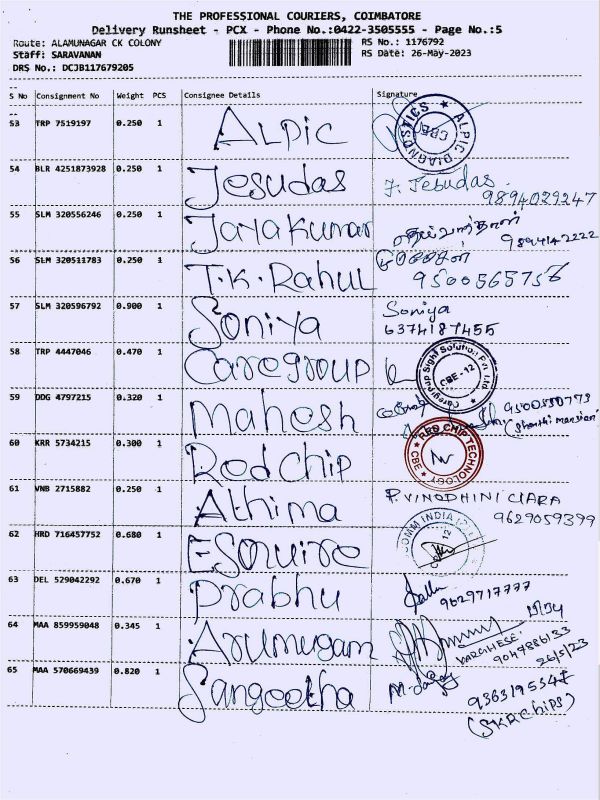 THE PROFESSIONAL COURIERS, COIMBATORE
Delivery Runsheet - PCX - Phone No.:0422-3505555 - Page No.:5
Route: ALAMUNAGAR CK COLONY RS No.: 1176792
Staff: SARAVANAN RS Date: 26-May-2023
DRS No.: DCJB117679205
S No Consignment No Weight PCS Consignee Details Signature
53 TRP 7519197 0.250 1 ALPic ALPIC DIAGNOSTICS CBE
54 BLR 4251873928 0.250 1 Jesudas J. Jebudas.
9894029247
55 SLM 320556246 0.250 1 Jayakumar
9894142222
56 SLM 320511783 0.250 1 T.K.Rahul
9500565758
57 SLM 320596792 0.900 1 Soniya Soniya
6374187455
58 TRP 4447046 0.470 1 Caregroup Caregroup Sight Solution Pvt. Ltd CBE-12
59 DDG 4797215 0.320 1 Mahesh 9500550773
(Shanthi mansion)
60 KRR 5734215 0.300 1 Red Chip RED CHIP TECHNOLOGY CBE
61 VNB 2715882 0.250 1 Athima P. VINODHINI CIARA
9629059399
62 HRD 716457752 0.680 1 Esquire COMM INDIA
63 DEL 529042292 0.670 1 Prabhu
9629717777
64 MAA 859959048 0.345 1 Arumugam
VARGHESE
9047886133
26/5/23
65 MAA 570669439 0.820 1 Sangeetha
(SKR Chips)